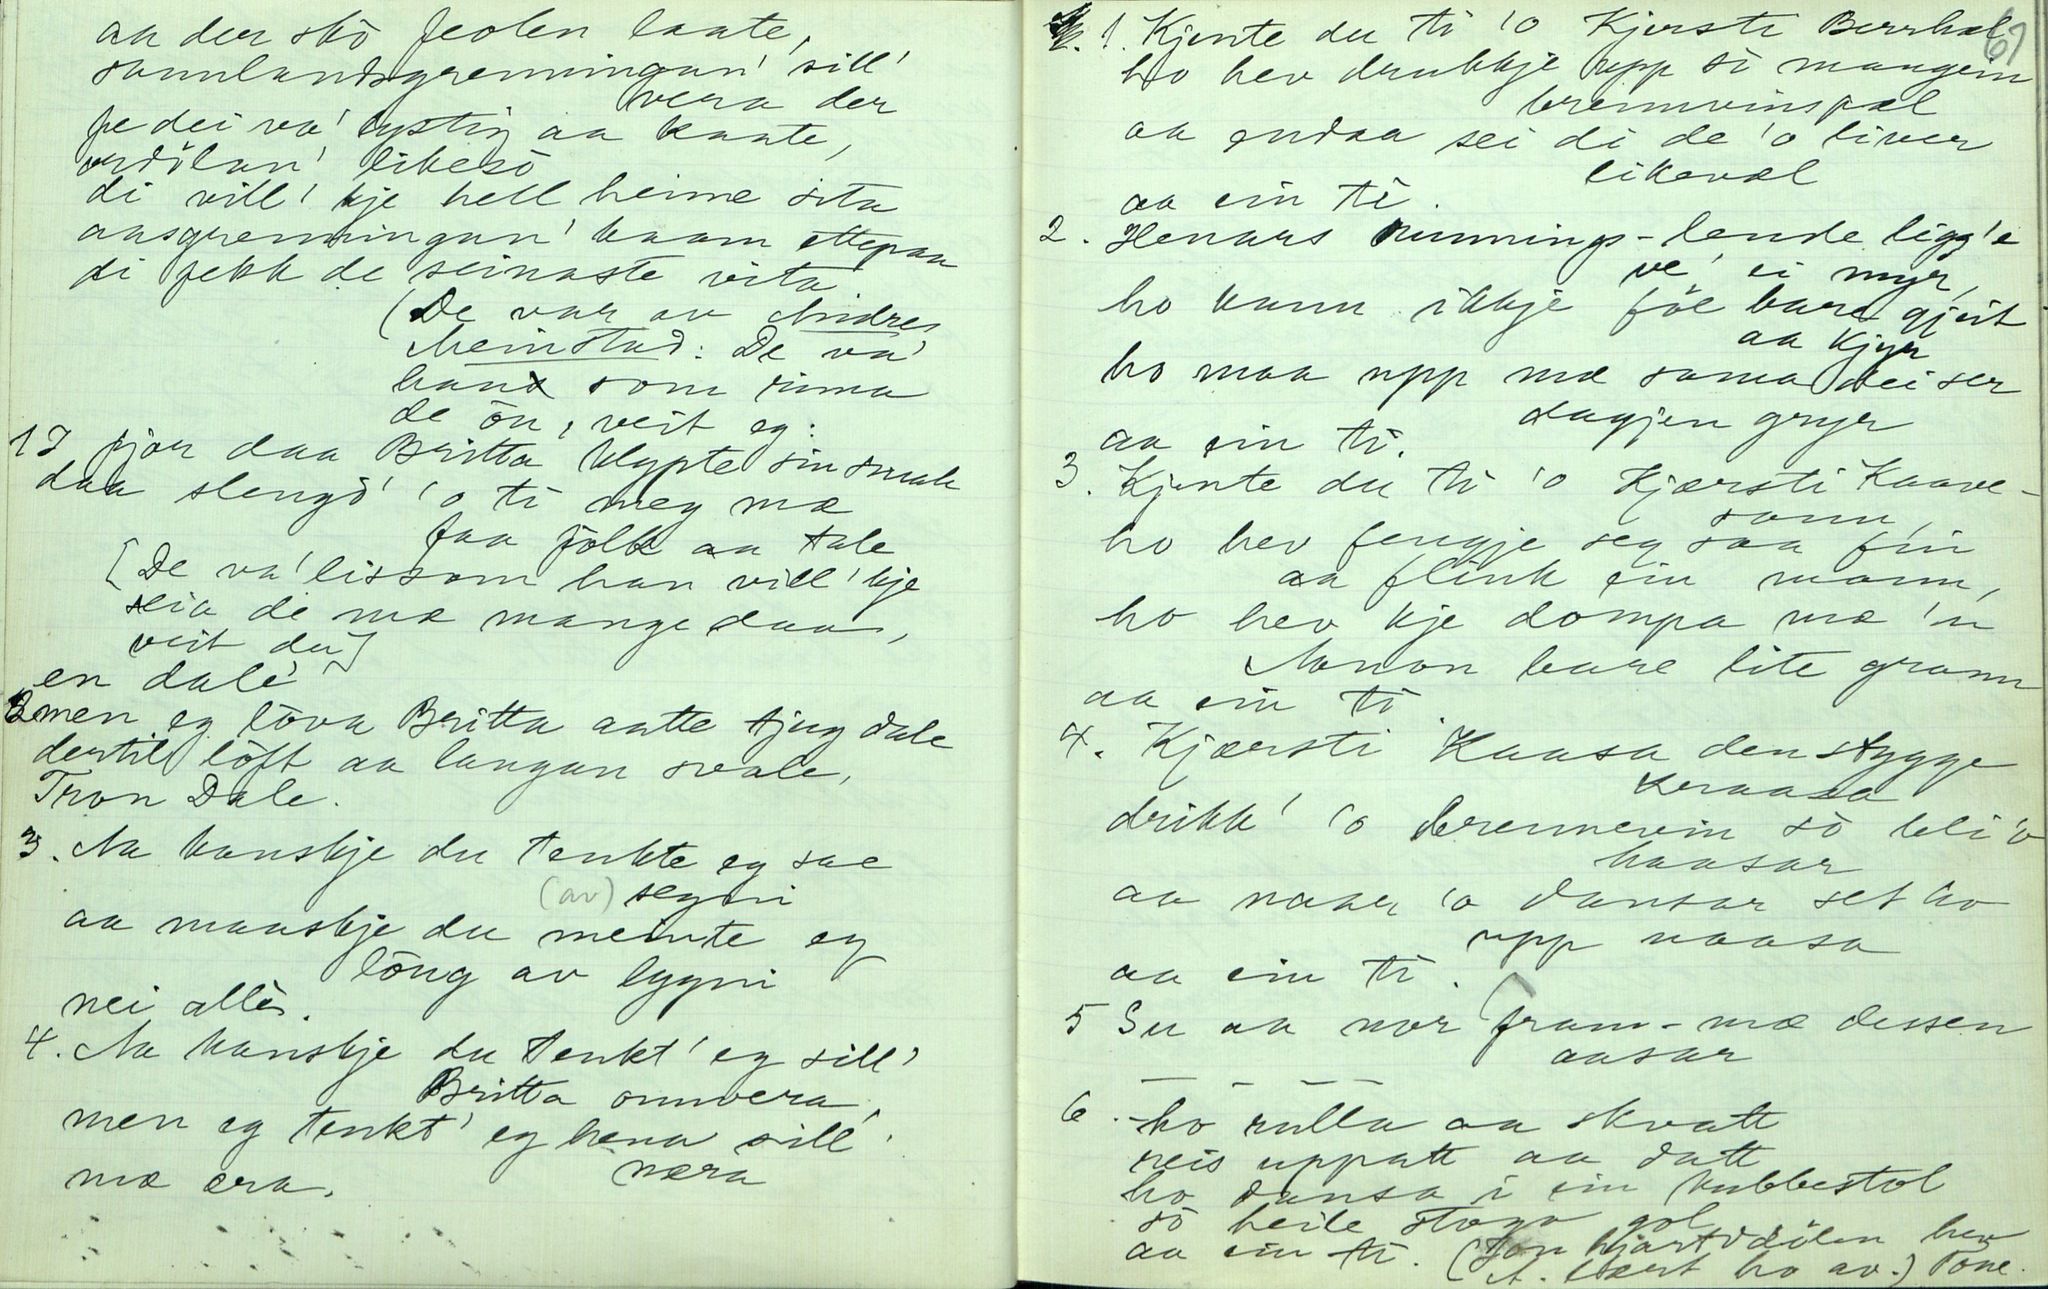 aa der skò feolen laate,
sannlandsgrenningan' sill'
vera der
fe dei va' lystig aa kaate,
ordölan' likesò
di vill' kje hell heime sita
aasgrenningan' kaam ettepaa
di fekk de seinaste vita
(De var av Andres
Meinstad: De va'
han som rima
de òn, veit eg.
1 I fjor daa Britta klypte sin smak
daa slengd' 'o ti meg mæ
faa fòlk aa tale
[De va' lissom han vill' kje
seia de mæ mange daa,
veit du]
en dale'
2 men eg lòva Britta aatte tjug dale
dertil lòft aa langan svale,
Tron Dale.
3. Aa kanskje du tenkte eg sae
(av) segni
aa maaskje du meinte eg
lòng av lygni
nei allès.
4. Aa kanskje du tenkt' eg sill'
Britta onnvera,
men eg tenkt' eg hena sill'
næra
mæ æra.
67
1. Kjente du ti 'o Kjersti Berrhæl
ho hev drukkje upp sì mangein
brennvinspæl
aa endaa sei di de 'o liver
likavæl
aa ein ti.
2. Henars runnings-lende ligg'e
ve' ei myr,
ho kann ikkje föe bare gjeit
aa kjyr
ho maa upp mæ sama dei ser
dagjen gryr
aa ein ti.
3. Kjente du ti 'o Kjærsti Kaave-
sann,
ho hev fengje seg saa fin
aa flink ein mann,
ho hev kje dompa mæ 'n
Anon bare lite grann
aa ein ti
4. Kjærsti Kaasa den stygge
kraasa
drikk' 'o brennevin sò bli 'o
haasar
aa naar 'o dansar set ho
upp naasa
aa ein ti.
5 Su aa nor fram-mæ dessen
aasar
6. - ho rulla aa skvatt
reis uppatt aa datt
ho dansa i ein kubbestol
sò heile stogo gol
aa ein ti. (Jon Hjartdölen hev
A. lært ho av.) Tone.